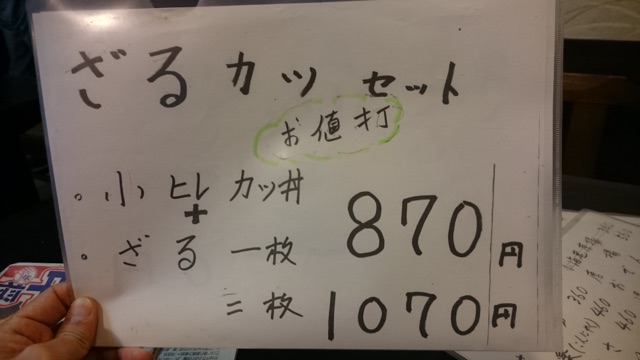 ざる カツ セット
お値打
・小ヒレカツ丼
+
・ざる 一枚 870円
二枚 1070円
350
460
460